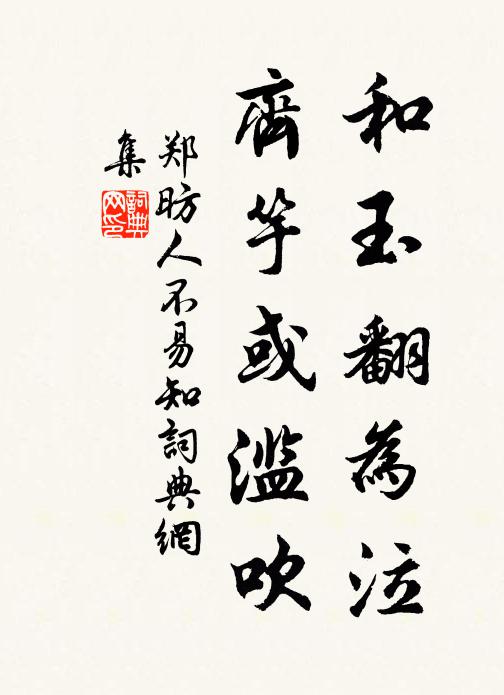 和玉翻為泣
齊竽或滥吹
郑昉人不易知詞典網
集
詞典网印